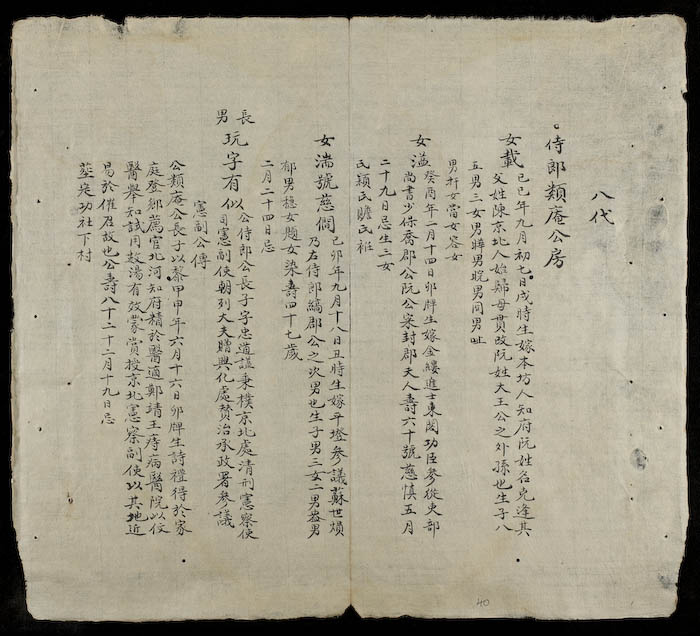 八代
侍郎類庵公房
女戴 己巳年九月初七日戌時生嫁本坊人知府阮姓名克逢其
父姓陳京北人始歸母貫改阮姓大王公之外孫也生子八
五男三女男暉男晥男同男
男 女當女容女
女 癸酉年一月十四日卯牌生嫁金縷進士東閣功臣參從吏部
尚書少保喬郡公阮公寀封郡夫人壽六十號慈慎五月
二十九日忌生三女
氏穎氏贍氏
女 號慈㵎 己卯年九月十八日丑時生嫁平 參議蘇世
乃左侍郎 郡公之次男也生子男三女二男 男
郁男穏女題女染壽四十七歲
二月二十四日忌
長男玩字有似 公侍郎公長子字忠道謚秉樸京北處清刑憲察使
司憲副使朝列大夫贈興化處賛治承政署參議
憲副公傳
公類庵公長子以黎甲申年六月十六日卯牌生詩禮得於家
庭登鄉薦官北河知府精於醫適鄭靖王痔病醫院以仪
醫舉知試用敖湯有效蒙賞授京北憲察副使以其地近
易於催召故也公壽八十二十二月十九日忌
墓完功社下村
40